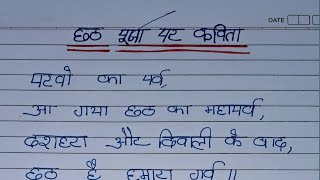 DATE
छठ पूजा पर कविता
परवो का पर्व,
आ गया छठ का महापर्व,
दशहरा और दिवाली के बाद,
छठ है हमारा गर्व॥